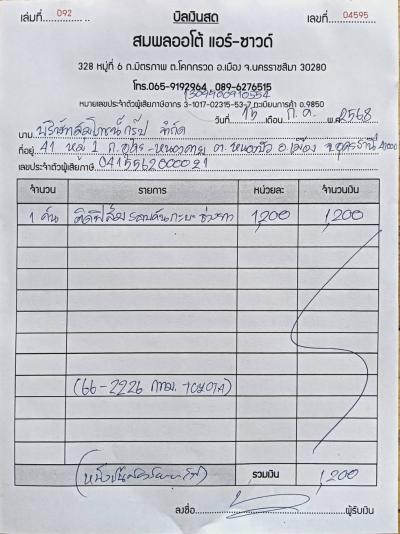 เล่มที่ 092 บิลเงินสด เลขที่ 04595
สมพลออโต้ แอร์-ซาวด์
328 หมู่ที่ 6 ถ.มิตรภาพ ต.โคกกรวด อ.เมือง จ.นครราชสีมา 30280
โทร.065-9192964 089-6276515
1309900910554
หมายเลขประจำตัวผู้เสียภาษีอากร 3-1017-02315-53-7 ทะเบียนการค้า อ.9850
วันที่ 15 เดือน ก.ค. พ.ศ. 2568
นาม บริษัท กรุ๊ป จำกัด
ที่อยู่ 41 หมู่ 1 ถ.อุดร-หนองคาย ต.หนองบัว อ.เมือง จ.อุดรธานี 41000
เลขประจำตัวผู้เสียภาษี 0415562000021
จำนวน รายการ หน่วยละ จำนวนเงิน
1 คัน ติดฟิล์มรอบคันกระบะ 1,200 1,200
(66-2226 กทม. TOYOTA)
รวมเงิน 1,200
ลงชื่อ ผู้รับเงิน